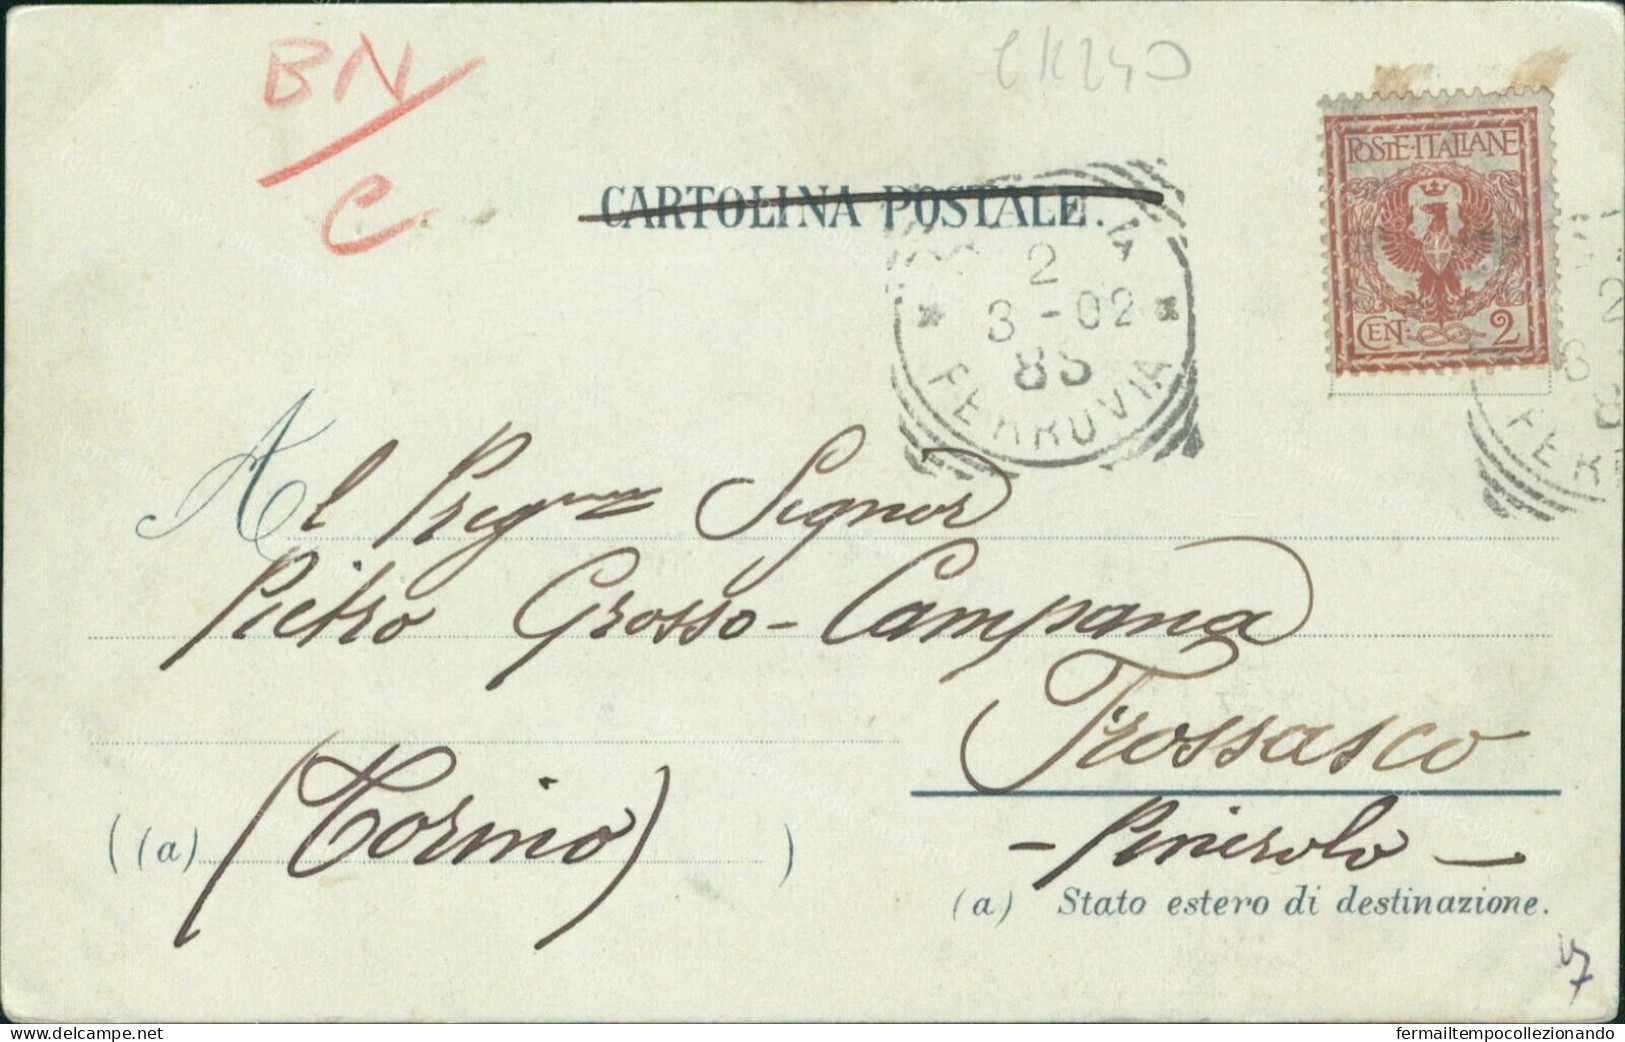 BN/C
CARTOLINA POSTALE.
POSTE·ITALIANE
CEN. 2
2
3-02
8S
FERROVIA
Al Preg.mo Signor
Pietro Grosso-Campana
Frossasco
(a) (Torino)
- Pinerolo -
(a) Stato estero di destinazione.
delcampe.net
fermailtempocollezionando